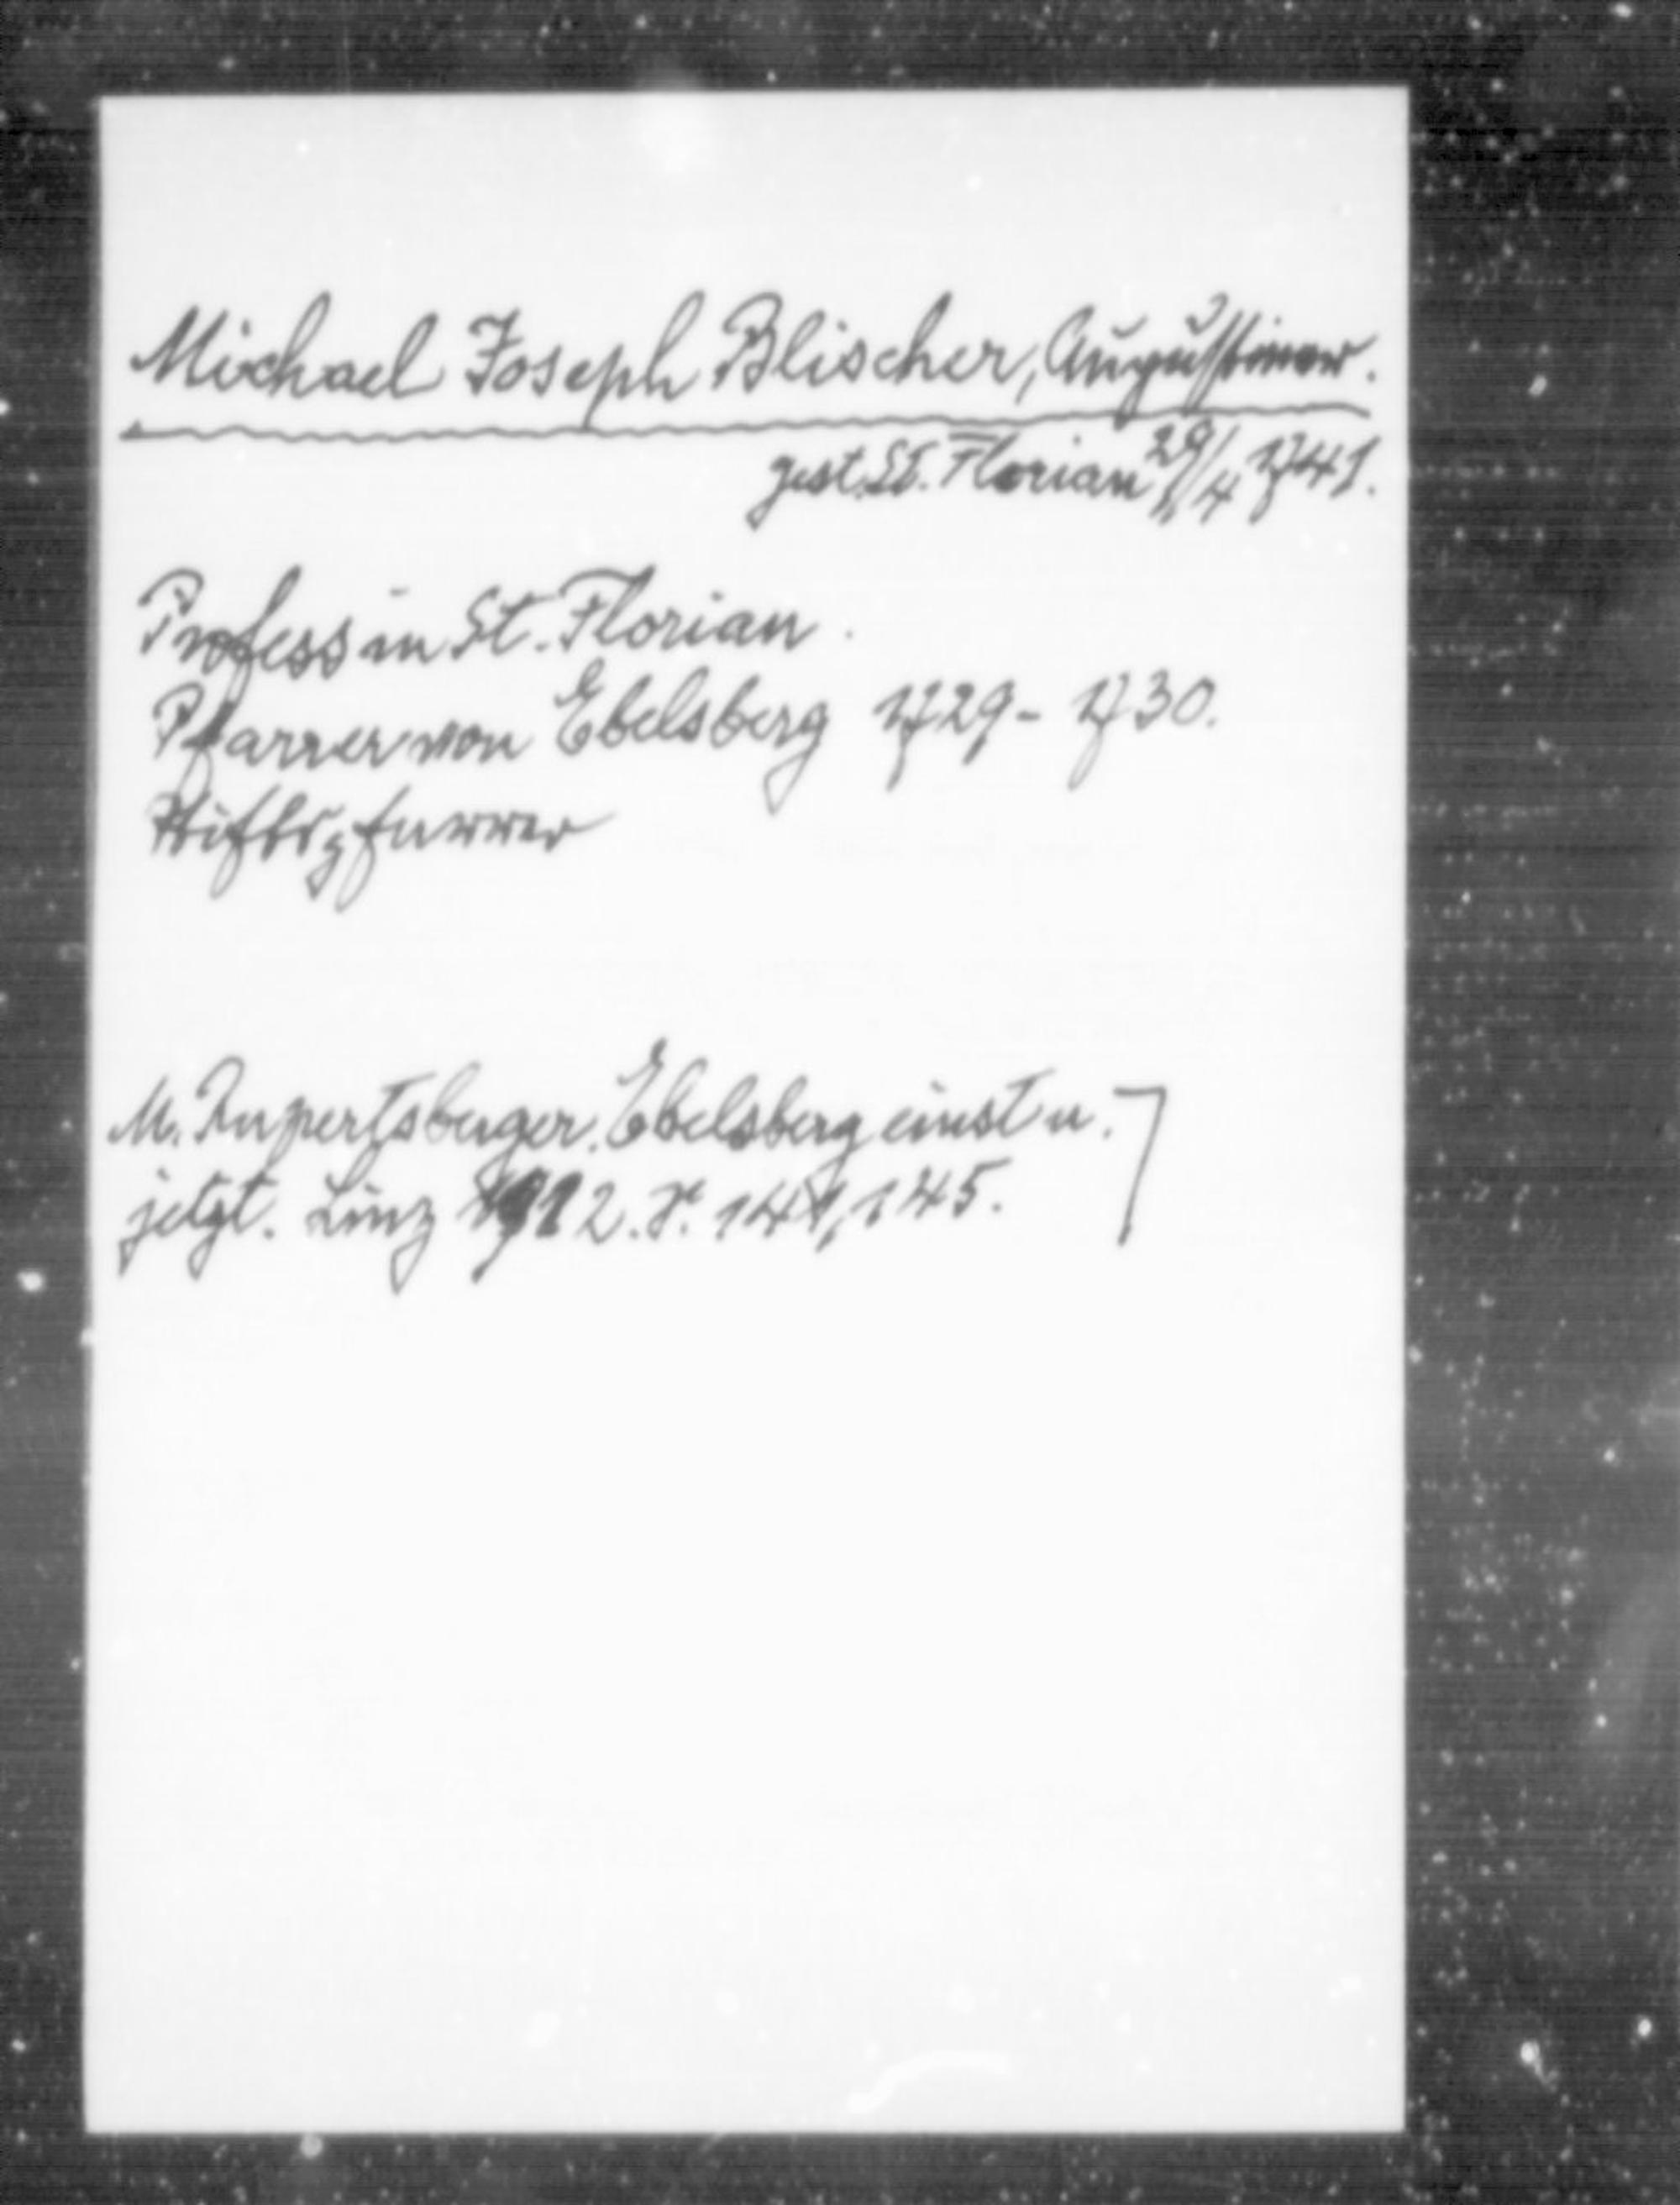 Michael Joseph Blischer, Augustiner.
gest. St. Florian 29/4 1741.
Profess in St. Florian.
Pfarrer von Ebelsberg 1729- 1730.
Stiftspfarrer
M. Rupertsberger. Ebelsberg einst u.
jetzt. Linz 1912. S. 144, 145.